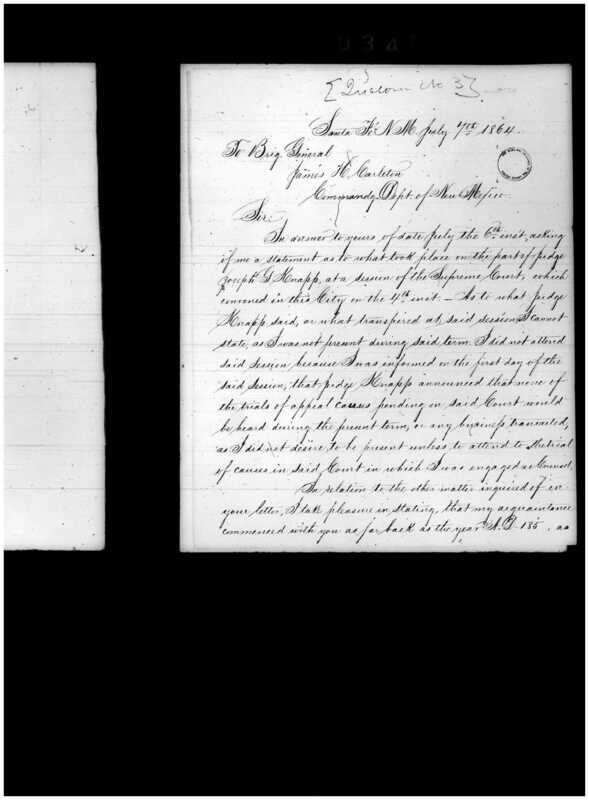 [Enclosure No 3]
Santa Fé N M July 7th 1864.
To Brig. General
James H. Carleton
Commandg Dept. of New Mexico
Sir:
In answer to yours, of date July the 6th inst, asking
of me a statement as to what took place on the part of Judge
Joseph G Knapp, at a session of the Supreme Court, which
convened in this City on the 4th inst. — As to what Judge
Knapp said, or what transpired at said session I cannot
state, as I was not present during said term. I did not attend
said session because I was informed on the first day of the
said session, that Judge Knapp announced that none of
the trials of appeal causes pending in said Court would
be heard during the present term, or any business transacted,
as I did not desire to be present unless to attend to the trial
of causes in said Court in which I was engaged as Counsel.
In relation to the other matter inquired of in
your letter, I take pleasure in stating, that my acquaintance
commenced with you as far back as the year A.D. 185 , as